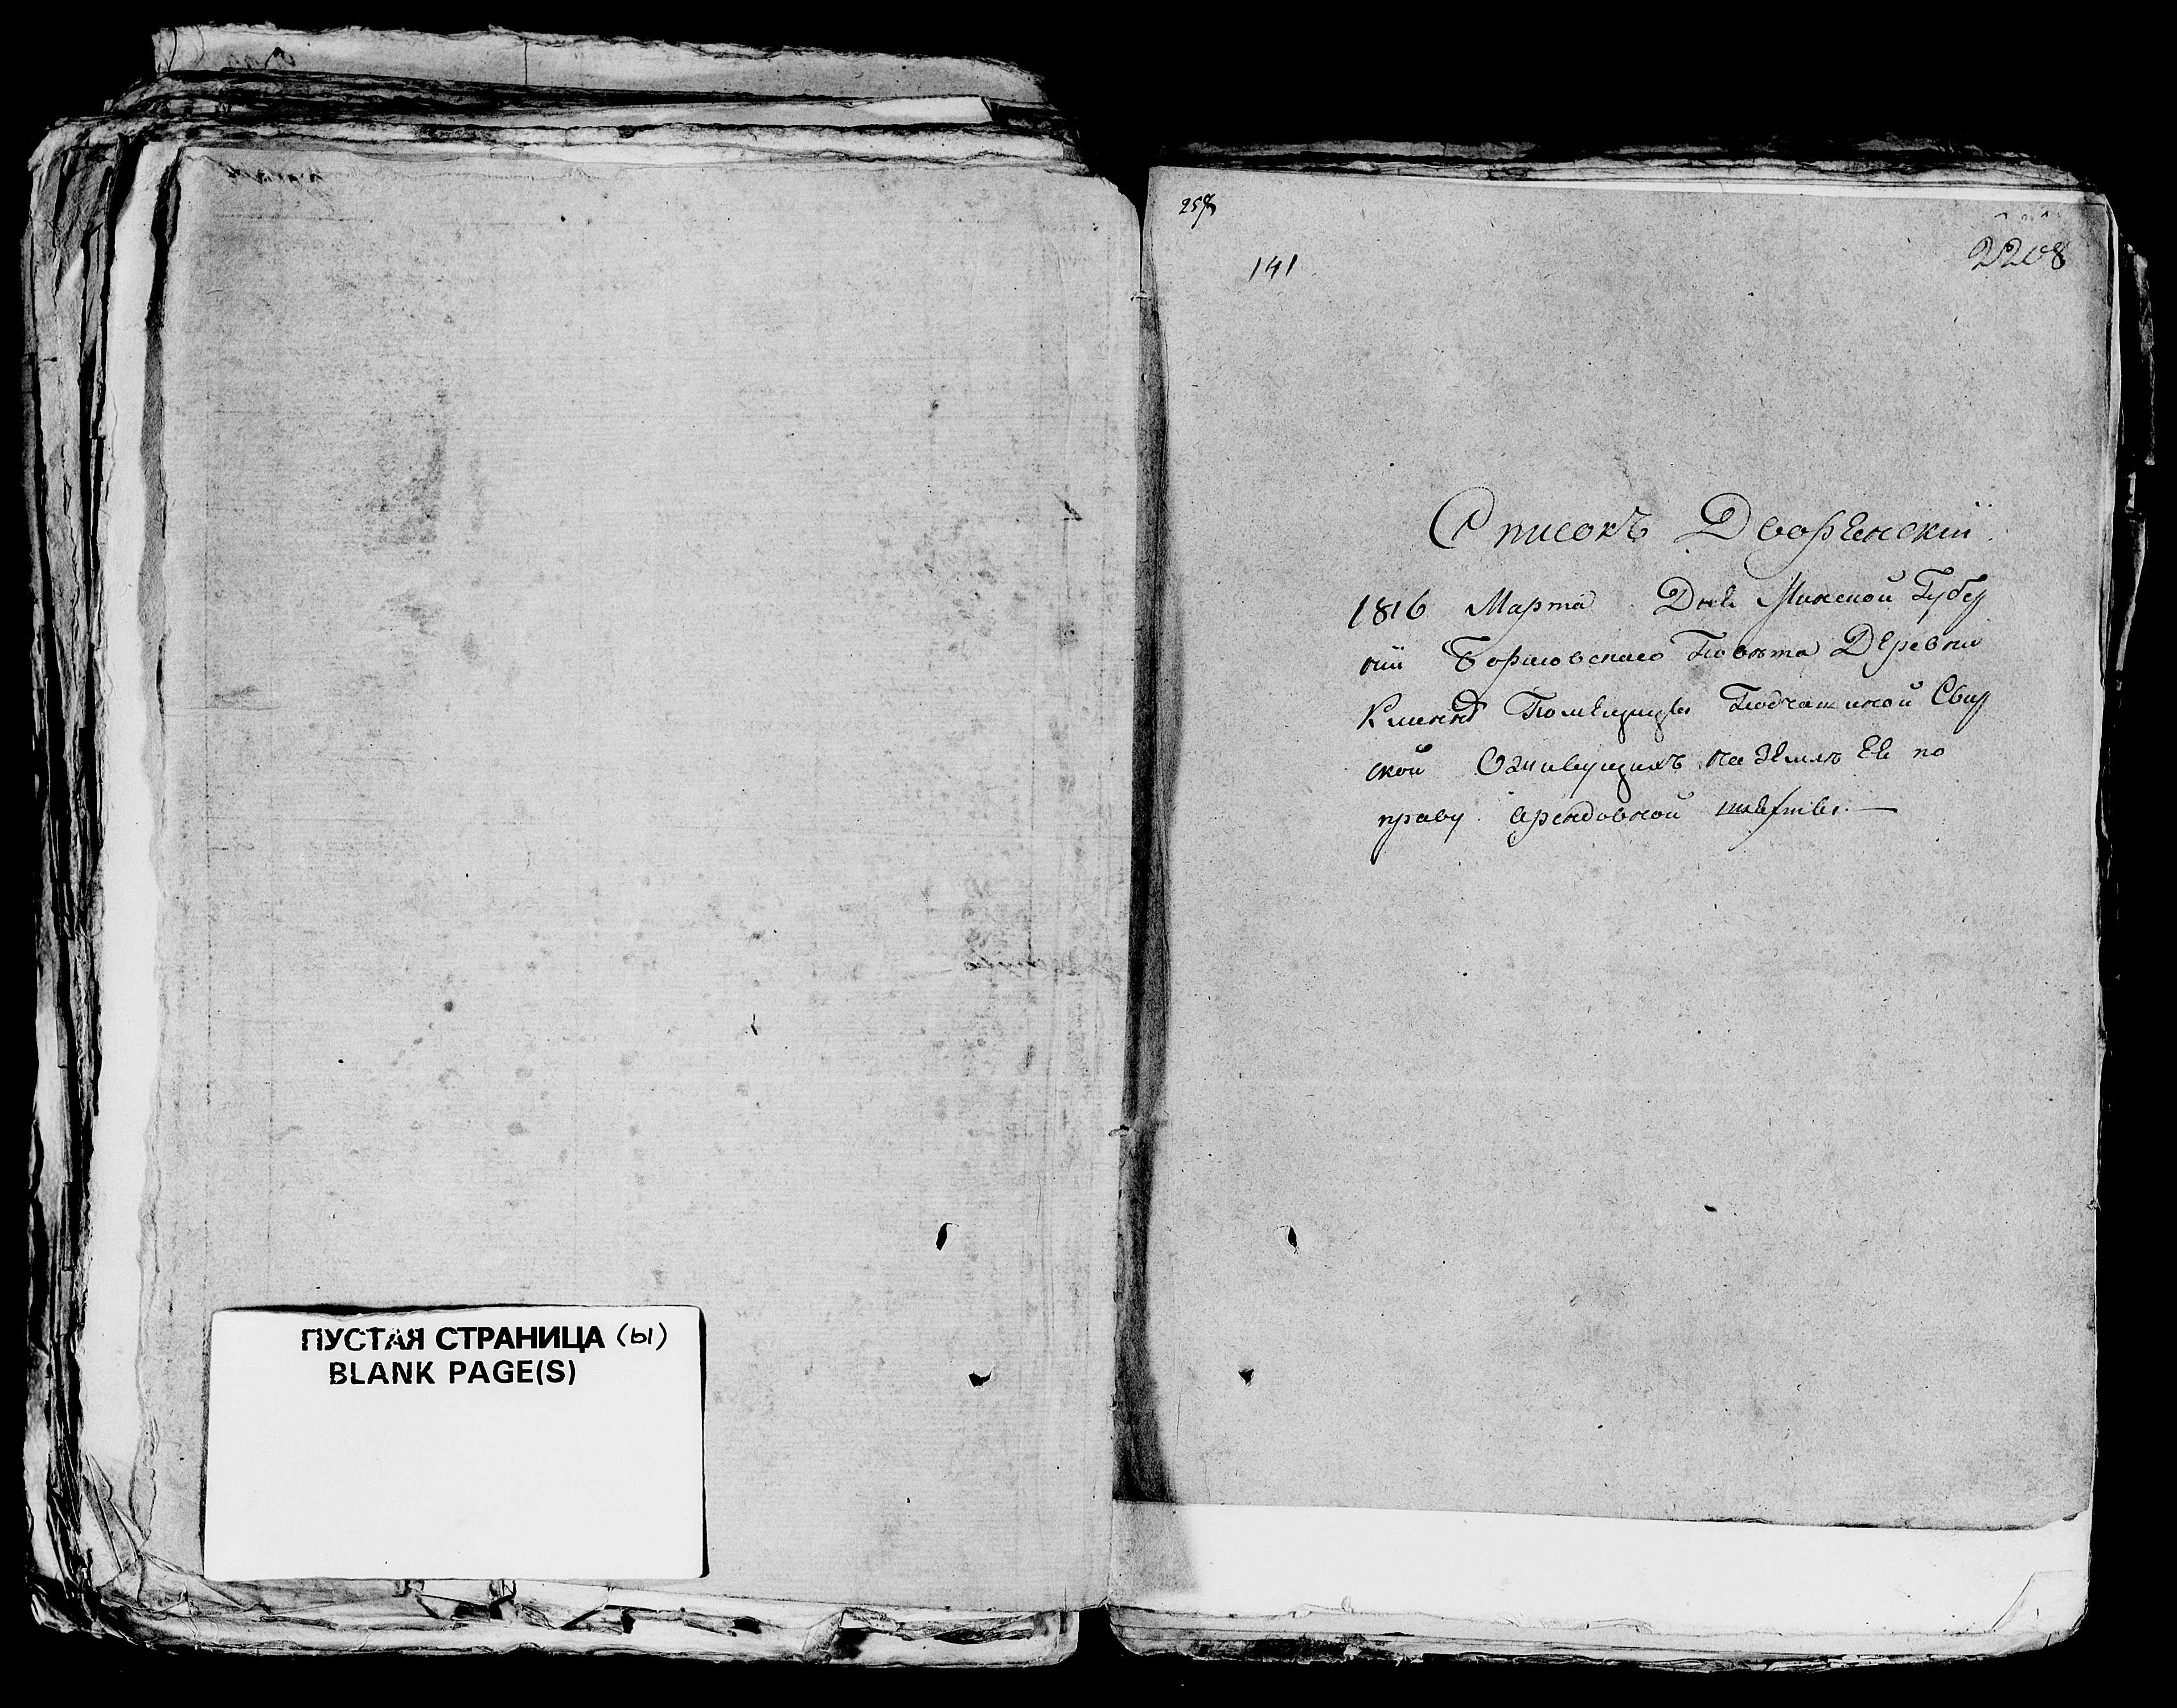 ПУСТАЯ СТРАНИЦА (ы)
BLANK PAGE(S)
141
2208
Списокъ Дворенскій
1816 Марта Дня Минской Губер
ніи Борисовскаго Повѣта Деревни
Помещицы Подчашиной Свир
ской на Землѣ Ея по
праву Арендовной